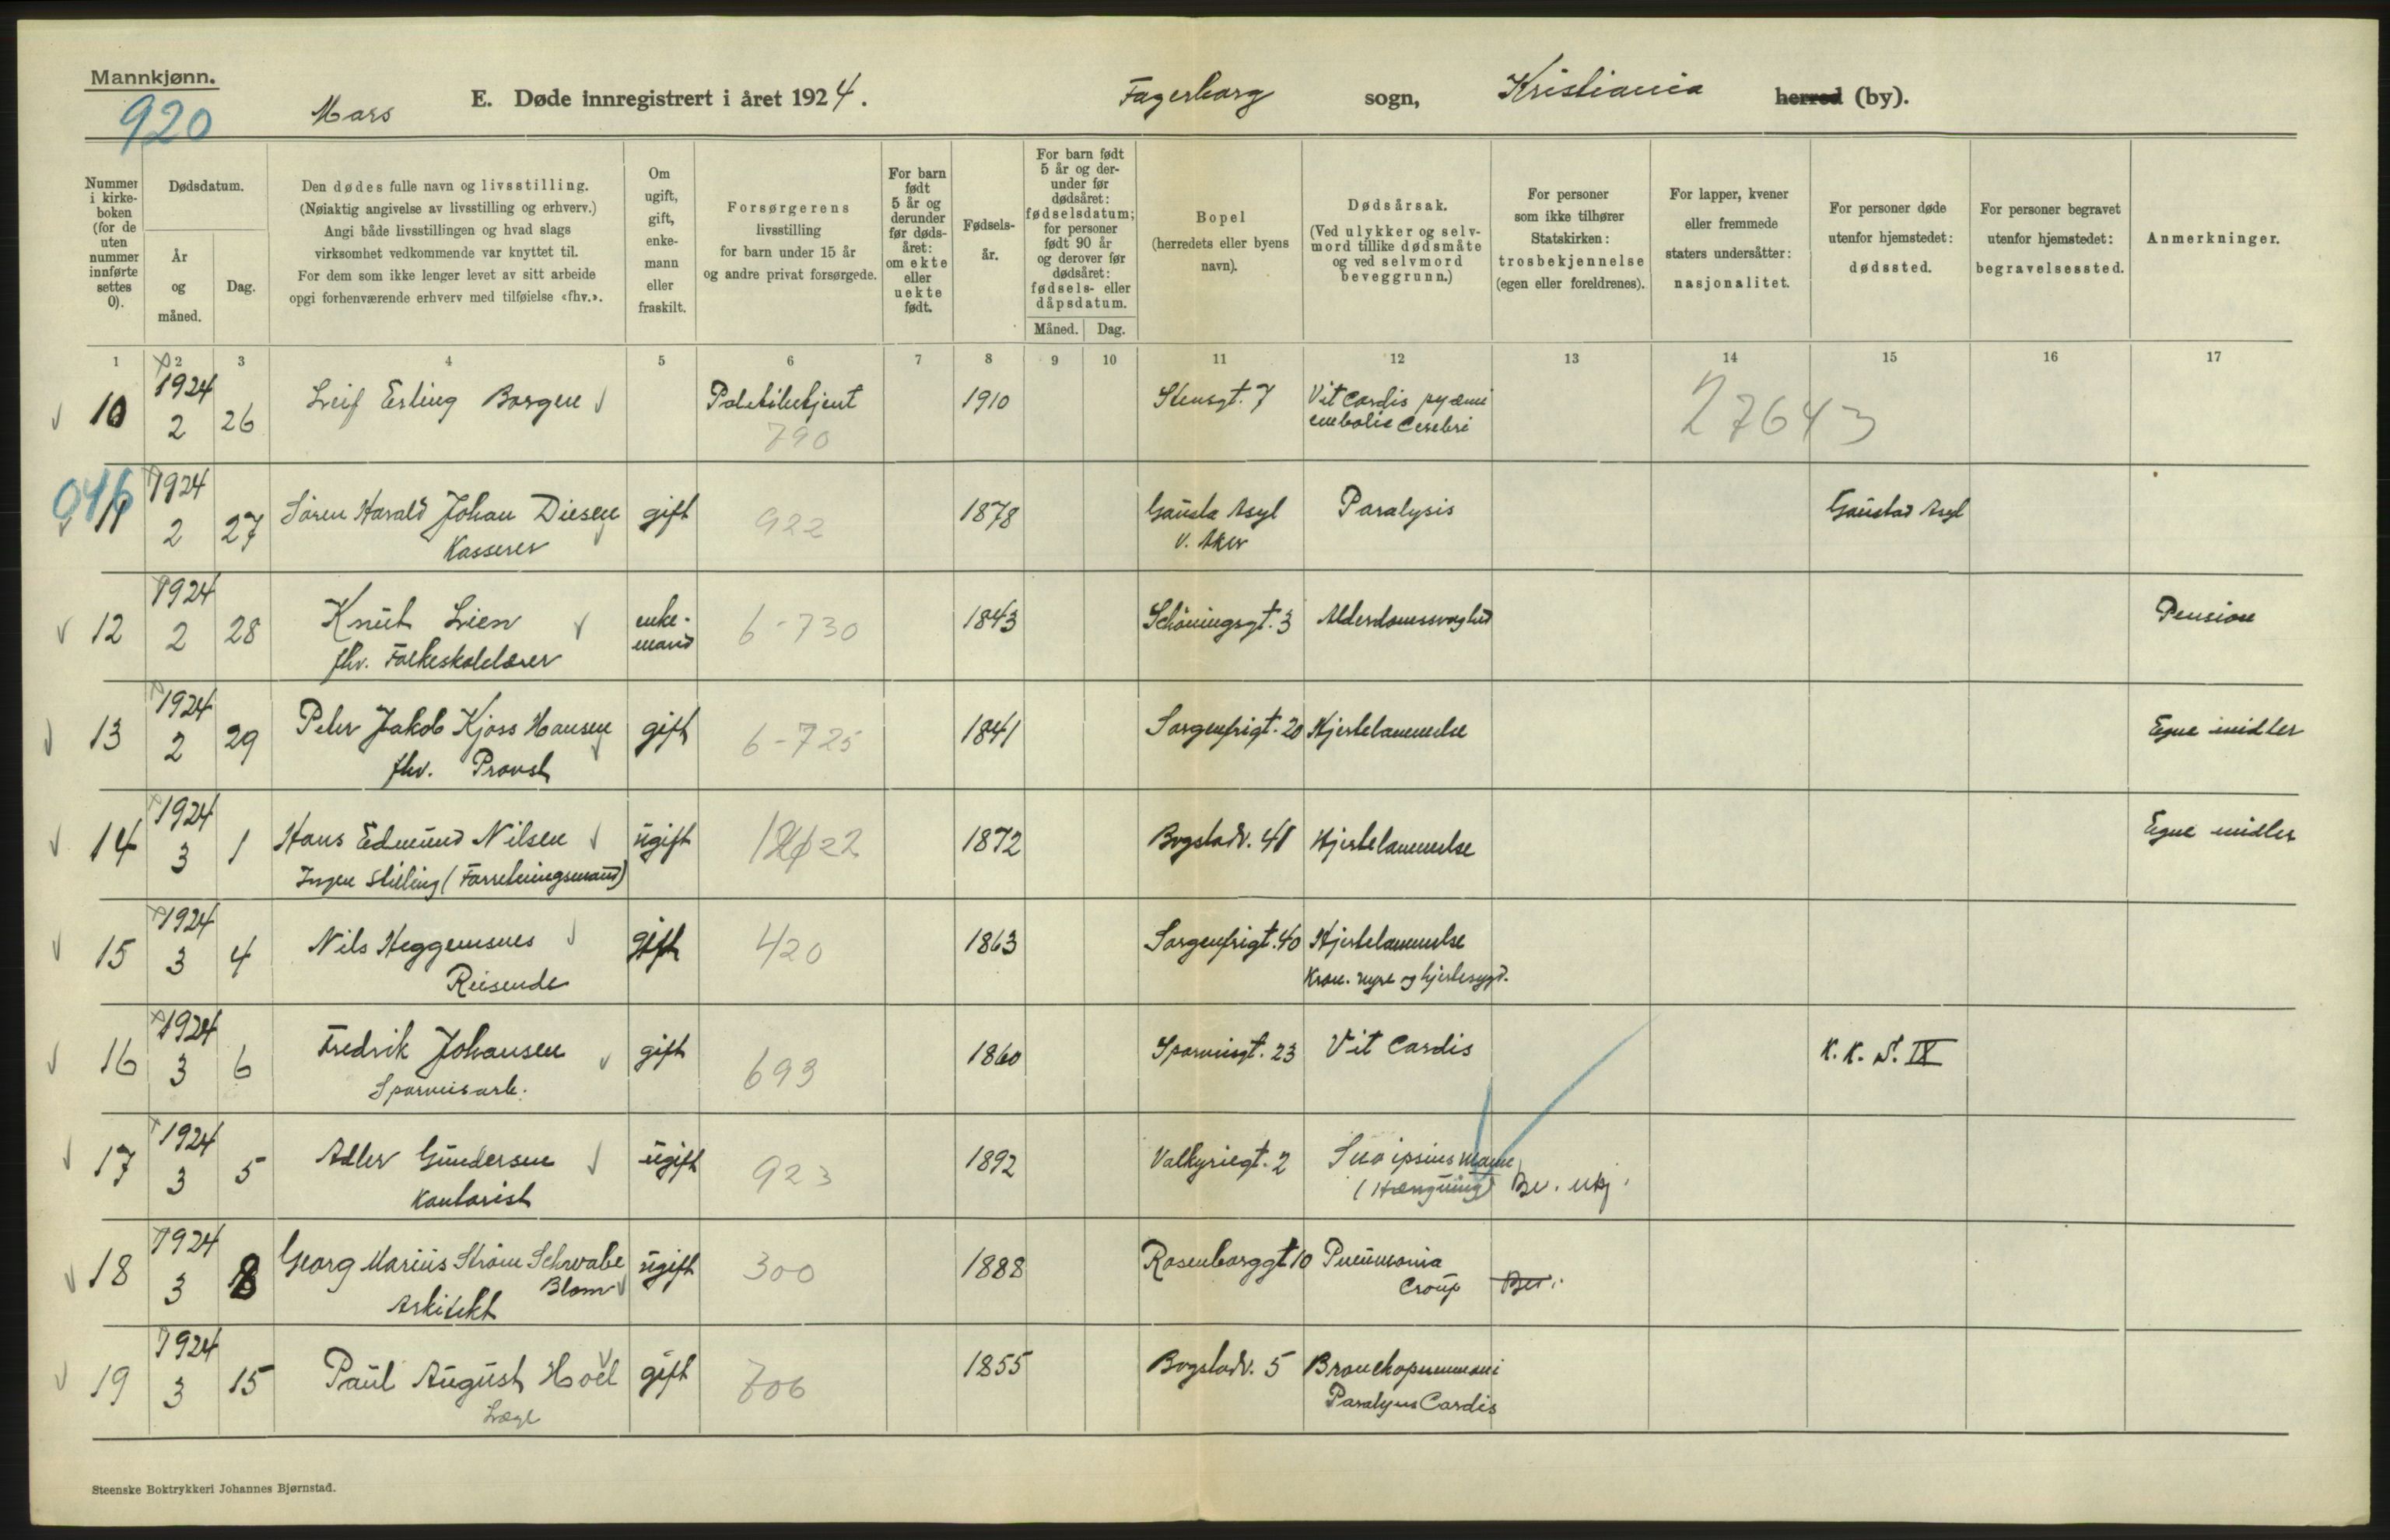 Mannkjønn.
920
Mars
E. Døde innregistrert i året 1924.
Fagerborg sogn, Kristiania herred (by).
Nummer i kirkeboken (for de uten nummer innførte settes 0).
Dødsdatum.
År og måned.
Dag.
Den dødes fulle navn og livsstilling.
(Nøiaktig angivelse av livsstilling og erhverv.)
Angi både livsstillingen og hvad slags
virksomhet vedkommende var knyttet til.
For dem som ikke lenger levet av sitt arbeide
opgi forhenværende erhverv med tilføielse «fhv.».
Om ugift, gift, enkemann eller fraskilt.
Forsørgerens
livsstilling
for barn under 15 år
og andre privat forsørgede.
For barn født 5 år og derunder før dødsåret: om ekte eller uekte født.
Fødselsår.
For barn født 5 år og derunder før dødsåret: fødselsdatum; for personer født 90 år og derover før dødsåret: fødsels- eller dåpsdatum.
Måned. Dag.
Bopel
(herredets eller byens navn).
Dødsårsak.
(Ved ulykker og selvmord tillike dødsmåte og ved selvmord beveggrunn.)
For personer
som ikke tilhører
Statskirken:
trosbekjennelse
(egen eller foreldrenes).
For lapper, kvener
eller fremmede
staters undersåtter:
nasjonalitet.
For personer døde
utenfor hjemstedet:
dødssted.
For personer begravet
utenfor hjemstedet:
begravelsessted.
Anmerkninger.
1 2 3 4 5 6 7 8 9 10 11 12 13 14 15 16 17
10 1924 2 26 Leif Erling Borgen Politibetjent 790 1910 Stensgt. 7 Vit Cordis pyæmi
embolie Cerebri 27643
11 1924 2 27 Sören Harald Johan Diesen gift 922 1878 Gausta Asyl Paralysis Gaustad Asyl
Kasserer v. Aker
12 1924 2 28 Knut Lien enkemand 6-730 1843 Schöningsgt. 3 Alderdomssvaghed Pension
fhv. Folkeskolelærer
13 1924 2 29 Peter Jakob Kjoss Hansen gift 6-725 1841 Sorgenfrigt. 20 Hjertelammelse Egne midler
fhv. Provst
14 1924 3 1 Hans Edmund Nilsen ugift 1872 Bogstadv. 41 Hjertelammelse Egne midler
Ingen stilling (Forretningsmand)
15 1924 3 4 Nils Heggemsnes gift 420 1863 Sorgenfrigt. 40 Hjertelammelse
Reisende Kron. nyre og hjertesygd.
16 1924 3 6 Fredrik Johansen gift 693 1860 Sporveisgt. 23 Vit Cordis K. K. S. IX
Sporveisarb.
17 1924 3 5 Adler Gundersen ugift 923 1892 Valkyriegt. 2 Sua ipsius manu
Kontorist (Hængning) Bev. ukj.
18 1924 3 8 Georg Marius Ström Schwabe ugift 300 1888 Rosenborggt 10 Pneumonia
Blom Croup Bev.
Arkitekt
19 1924 3 15 Paul August Hoël gift 706 1855 Bogstadv. 5 Bronchopneumoni
Læge Paralysis Cordis
Steenske Boktrykkeri Johannes Bjørnstad.